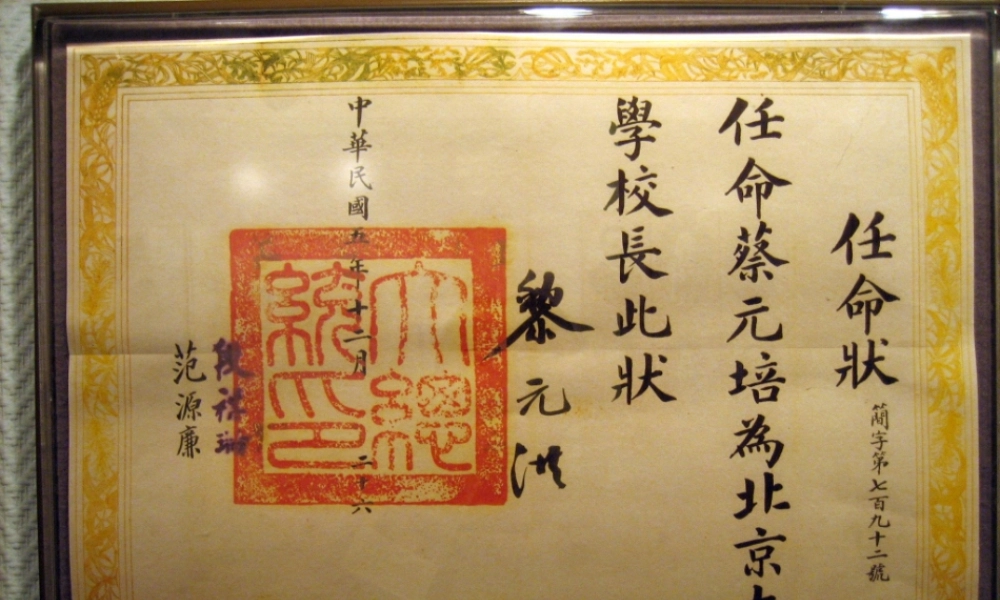 任命狀
簡字第七百九十二號
任命蔡元培為北京
學校長此狀
黎元洪
大總統印
中華民國五年十二月二十六
段祺瑞
范源廉